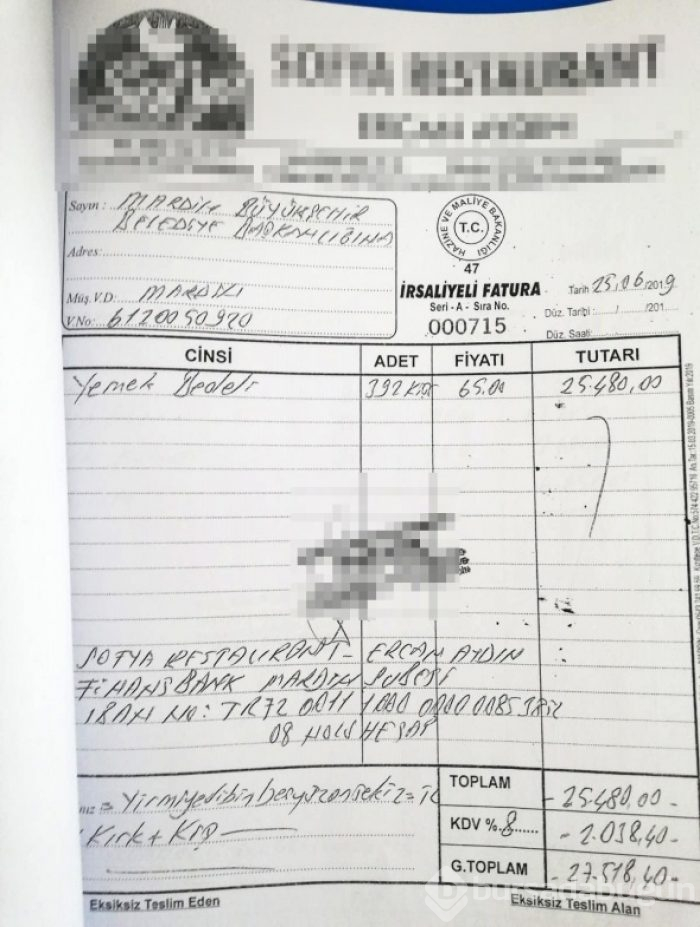 SOFYA RESTAURANT
ERCAN AYDIN
Sayın : MARDİN BÜYÜKŞEHİR
BELEDİYE BAŞKANLIĞINA
Adres:
Müş.V.D: MARDİN
V.No: 6120050920
T.C.
HAZİNE VE MALİYE BAKANLIĞI
47
İRSALİYELİ FATURA
Seri - A - Sıra No.
000715
Tarih 25.06/2019
Düz. Tarihi :....../....../201....
Düz. Saati:
CİNSİ ADET FİYATI TUTARI
Yemek Bedeli 392 Kişi 65.00 25.480,00
SOFYA RESTAURANT - ERCAN AYDIN
FİNANSBANK MARDİN ŞUBESİ
IBAN NO: TR72 0011 1000 0000 0085
08 NOLU HESAP
TOPLAM - 25.480,00 -
KDV %.8...... - 2.038,40 -
G.TOPLAM - 27.518,40 -
= Yirmiyedibinbeşyüzonsekiz = TL
Kırk + Krş
Eksiksiz Teslim Eden
Eksiksiz Teslim Alan
bursadabugün